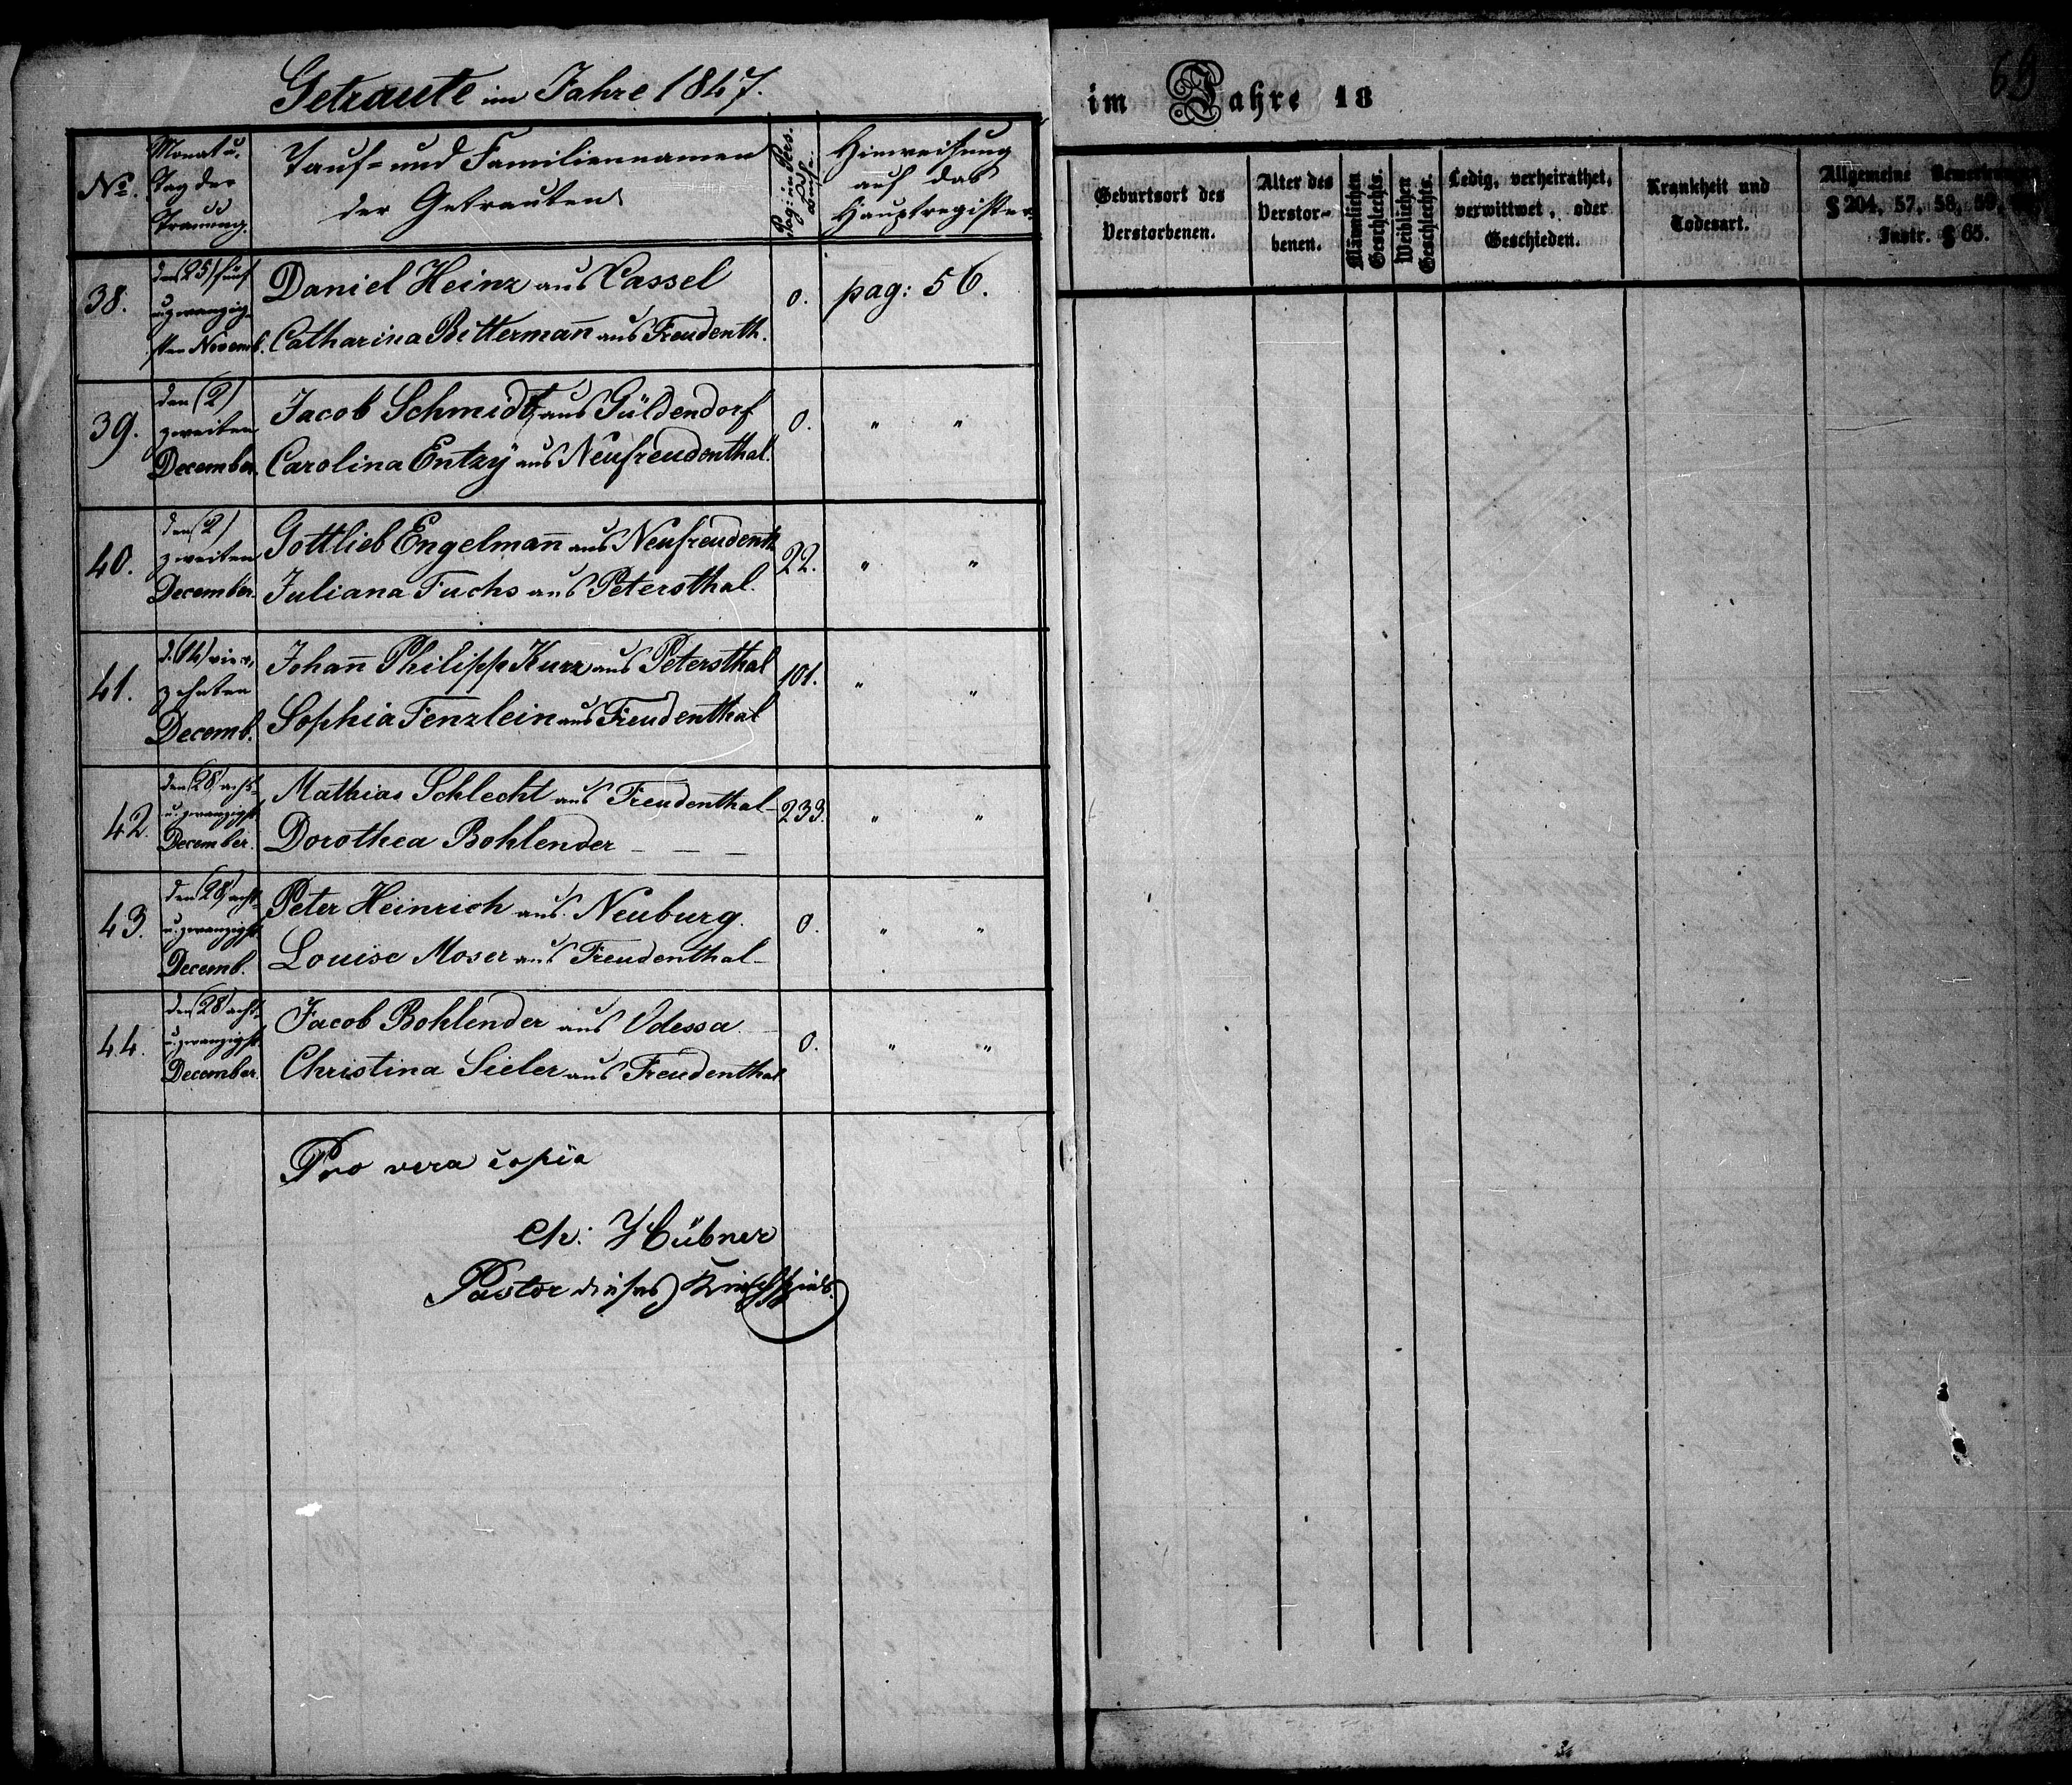 Getraute im Jahre 1847.
No. Monat u. Tag der Trauung. Tauf- und Familiennamen der Getrauten Pag: in Pers. Hinweisung auf das Hauptregister.
38. den (25) fünf Daniel Heinz aus Cassel 0. pag: 56.
u. zwanzig-
sten Novemb. Catharina Bittermañ aus Freudenth.
39. den (2) Jacob Schmidt aus Güldendorf 0. " "
zweiten
December. Carolina Entzÿ aus Neufreudenthal.
40. den (2) Gottlieb Engelmañ aus Neufreudenth. 22. " "
zweiten
December. Juliana Fuchs aus Petersthal.
41. d. (14) vier- Johañ Philipp Kurz aus Petersthal 101. " "
zehnten
Decemb. Sophia Fenzlein aus Freudenthal
42. den (28) acht- Mathias Schlecht aus Freudenthal- 233. " "
u. zwanzigst.
December. Dorothea Bohlender – – –
43. den (28) acht- Peter Heinrich aus Neuburg. 0. " "
u. zwanzigst.
Decemb. Louise Moser aus Freudenthal-
44. den (28) acht- Jacob Bohlender aus Odessa 0. " "
u. zwanzigst.
December. Christina Sieler aus Freudenthal
Pro vera copia
Ch: Hübner
Pastor dieses Kirchspiels.
69
im Jahre 18
Geburtsort des Verstorbenen.
Alter des Verstor-
benen.
Männlichen Geschlechts.
Weiblichen Geschlechts.
Ledig, verheirathet,
verwittwet, oder
Geschieden.
Krankheit und
Todesart.
Allgemeine
§ 204, 57, 58, 59,
Instr. § 65.